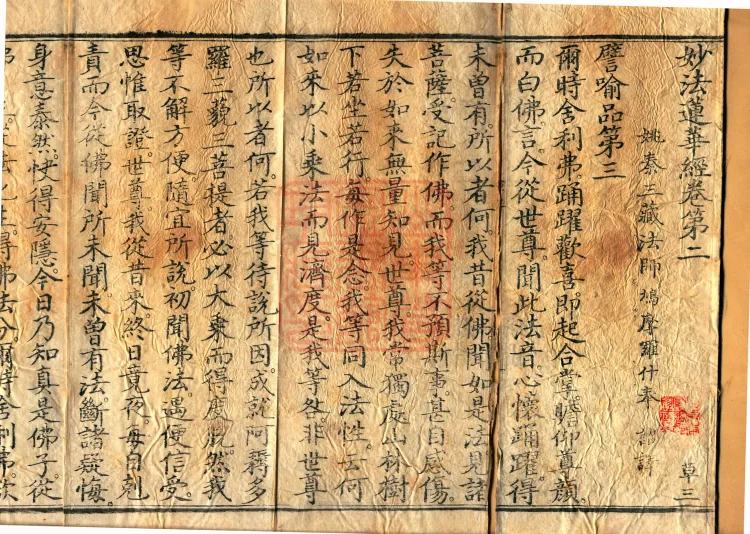 妙法蓮華經卷第二
姚秦三藏法師鳩摩羅什奉 詔譯
草三
譬喻品第三
爾時舍利弗踊躍歡喜即起合掌瞻仰尊顏。
而白佛言。今從世尊聞此法音心懷踊躍得
未曾有。所以者何。我昔從佛聞如是法見諸
菩薩受記作佛而我等不預斯事。甚自感傷。
失於如來無量知見。世尊。我常獨處山林樹
下若坐若行。每作是念。我等同入法性。云何
如來以小乘法而見濟度。是我等咎非世尊
也所以者何。若我等待說所因。成就阿耨多
羅三藐三菩提者必以大乘而得度脫。然我
等不解方便。隨宜所說初聞佛法。遇便信受。
思惟取證。世尊。我從昔來終日竟夜。每自剋
責而今從佛聞所未聞未曾有法。斷諸疑悔。
身意泰然。快得安隱今日乃知真是佛子從
法化生。得佛法分。爾時舍利弗。欲